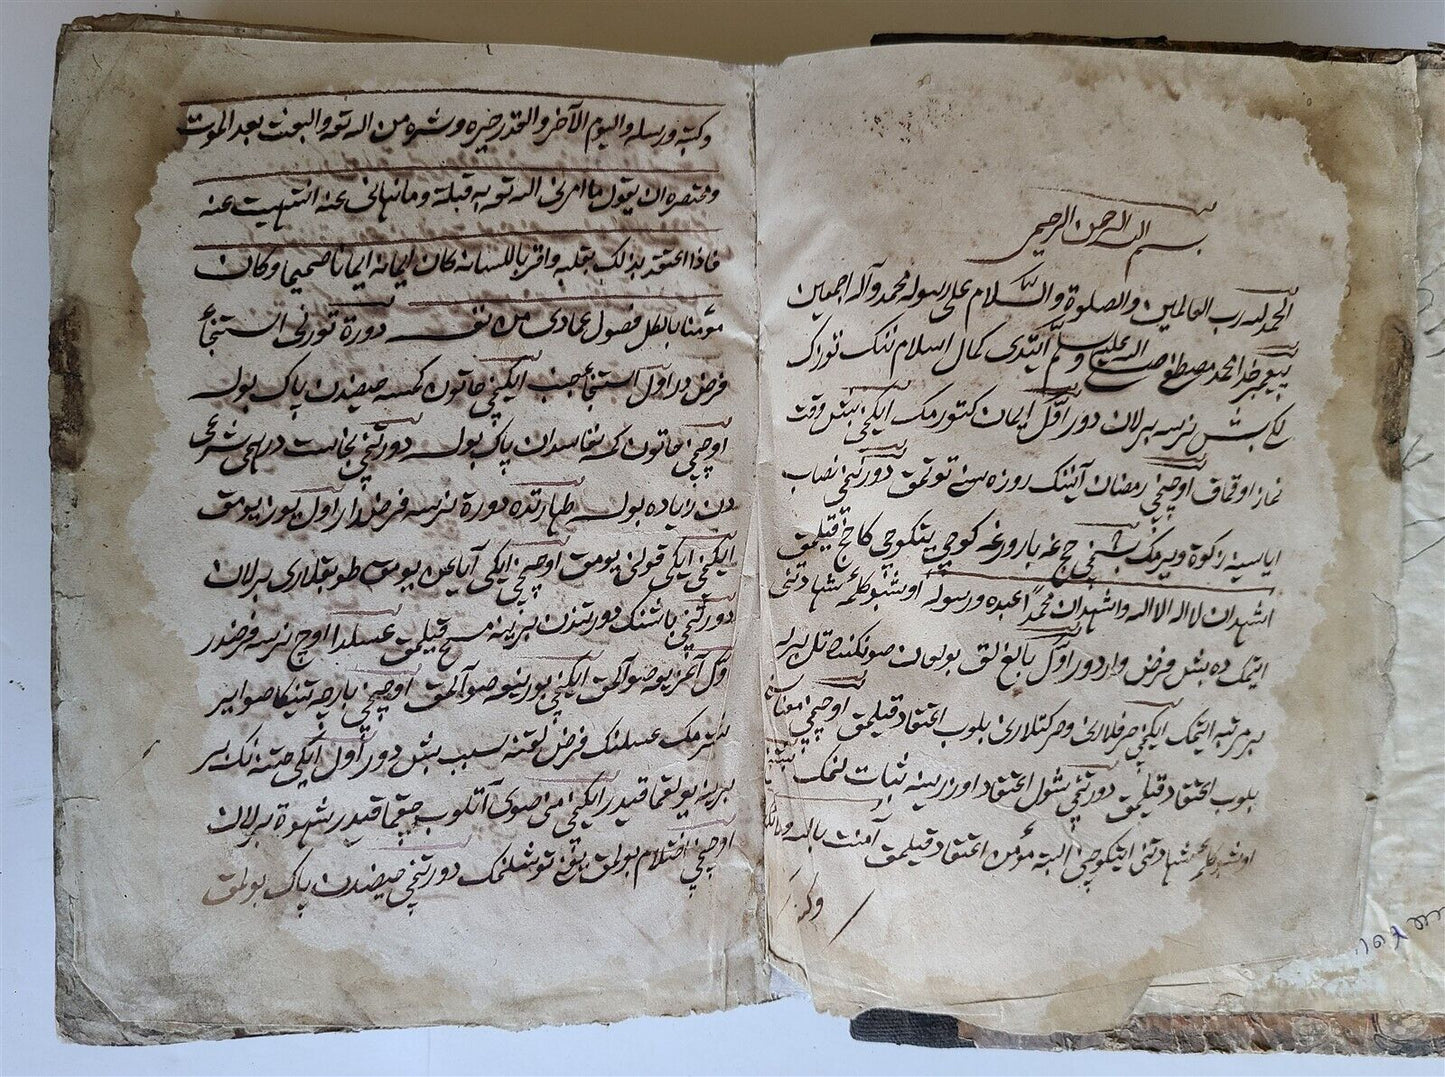 بسم الله الرحمن الرحيم
الحمد لله رب العالمين والصلوة والسلام على رسوله محمد وآله اجمعين
پيغمبر خدا محمد مصطفى صلى الله عليه وسلم ايتدى كمال اسلام ننك توراك
لكى بش نرسه برلان دور اوّل ايمان كتورمك ايكنچى بيش وقت
نماز اوقماق اوچنچى رمضان آيننك روزه سنى توتمق دورتنچى نصاب
اياسينه زكوة ويرمك بشنچى حج غه بارورغه كوچى يتكوچى كا حج قيلمق
اشهد ان لا اله الا الله واشهد ان محمداً عبده ورسوله اوشبو كلمهٔ شهادتنى
ايتمك ده بش فرض واردور اوّل بالغ لق بولغان صونكنده تل برله
بر مرتبه ايتمك ايكنچى حرفلارى وحركتلارى بلوب اعتقاد قيلمق اوچنچى معناسن
بلوب اعتقاد قيلمق دورتنچى شول اعتقاد اوزرينه ثبات ايتمك بيشنچى
اوشبو كلمهٔ شهادتنى ايتكوچنى البته مؤمن اعتقاد قيلمق آمنت بالله وملائكته
وكتبه
وكتبه ورسله واليوم الآخر والقدر خيره وشره من الله تع والبعث بعد الموت
ومختصره ان يقول ما امرنى الله تع به قبلته وما نهانى عنه انتهيت عنه
فاذا اعتقد بذلك بقلبه واقر باللسانه كان ايمانه ايمانا صحيحا وكان
مؤمنا بالكل فصول عمادى من نفسه دورة تورنى استنجأ
فرض در اول استنجأ جنب ايكنچى خاتون كمسه حيضدن پاك بولسه
اوچنچى خاتون كمسه نفاسدان پاك بولسه دورتنچى نجاست درهمى شرعى
دن زياده بولسه طهارتده دورة نرسه فرض در اول يوز يومق
ايكنچى ايكى قولنى يومق اوچنچى ايكى آياغن يومق طوبقلارى برلان
دورتنچى باشننك دورتدن برينه مسح قيلمق غسلدا اوچ نرسه فرضدر
اوّل آغزيغه صو آلمق ايكنچى بورنيغه صو آلمق اوچنچى بارچه تنيكا صو ايرير
يتشترمك غسلننك فرض لغنه سبب بش دور اوّل ايكى ختنه ننك بر
برينه يولقماقيدر ايكنچى منى صوى آتلوب چقماقيدر شهوة برلان
اوچنچى احتلام بولمق يعنى توشلنمك دورتنچى حيضدن پاك بولمق